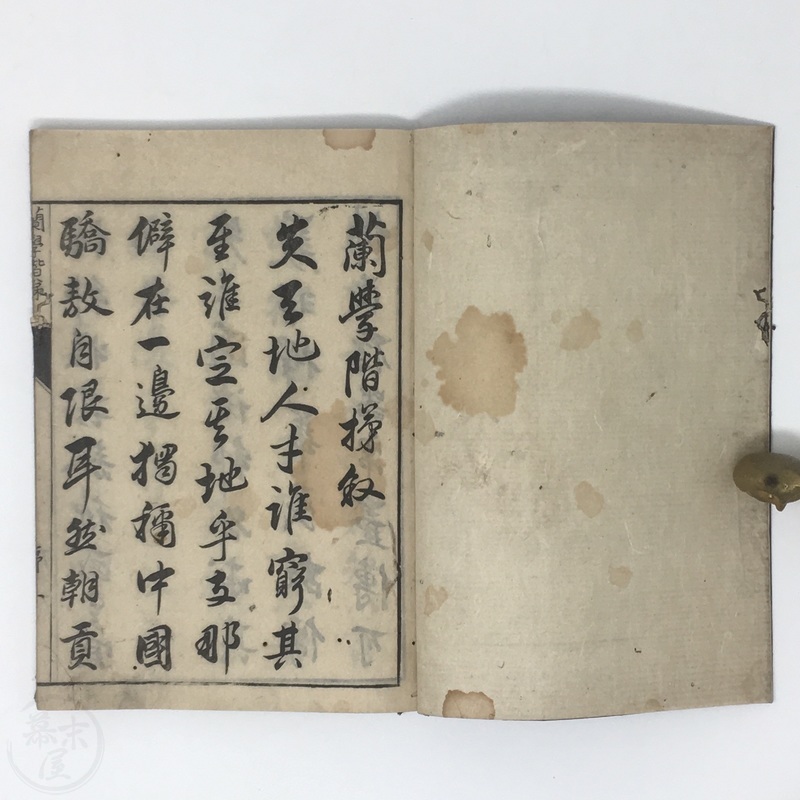 蘭學階梯叙
夫天地人才誰窮其
至誰定其地乎支那
僻在一邊獨稱中國
驕敖自限耳然朝貢
蘭學階梯
幕末屋